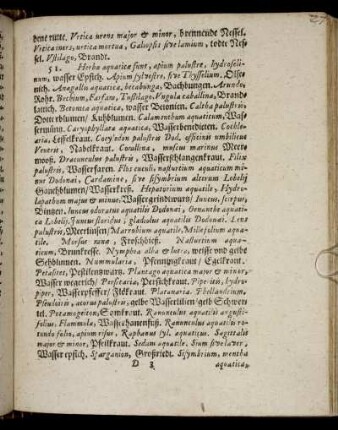 dent rutte. Vrtica urens major & minor, brennende Nessel.
Vrtica iners, urtica mortua, Galiopsis sive lamium, todte Nes-
sel. Vstilago, Brandt.
51. Herbæ aquaticæ sunt, apium palustre, hydroseli-
num, wasser Epfich. Apium sylvestre, sive Thysselium, Olse-
nich. Anagallis aquatica, becabunga, Bachbungen. Arundo,
Rohr. Bechium, Farfara, Tussilago, Vngula caballina, Brandt-
lattich. Betonica aquatica, wasser Betonien. Caltha palustris,
Dotterblumen / Kuhblumen. Calamentum aquaticum, Was-
sermüntz. Caryophyllata aquatica, Wasserbenedicten. Cochle-
aria, Löffelkraut. Cotyledon palustris Dod. officinis umbilicus
Veneris, Nabelkraut. Corallina, muscus marinus Meer-
mooß. Dracunculus palustris, Wasserschlangenkraut. Filix
palustris, Wasserfaren. Flos cuculi, nasturtium aquaticum mi-
nus Dodonæi, Cardamine, sive sisymbrium alterum Lobelij
Gauchblumen / Wasserkreß. Hepatorium aquatile, Hydro-
lapathum majus & minus, Wassergrindtwurtz / Juncus, scirpus,
Bintzen. Juncus odoratus aquatilis Dodonæi, Oenanthe aquati-
ca Lobelij. Juncus floridus, gladiolus aquatilis Dodonæi. Lens
palustris, Meerlinsen / Marrubium aquatile, Millefolium aqua-
tile. Morsus ranæ, Froschbiß. Nasturtium aqua-
ticum, Brunkresse. Nymphæa alba & lutea, weisse und gelbe
Sehblumen. Nummularia, Pfennigkraut / Egelkraut.
Petasites, Pestilentzwurtz. Plantago aquatica major & minor,
Wasser wegerich / Persicaria, Persichkraut. Piperitis, hydro-
piper, Wasserpfeffer / Flökraut. Platanaria. Phellandrium.
Pseudoiris, acorus palustris, gelbe Wasserlilien / gelb Schwer-
tel. Potamogeiton, Samkraut. Ranunculus aquatilis angusti-
folius, Flammula, Wasserhanenfuß. Ranunculus aquatilis ro-
tundo folio, apium risus, Raphanus syl. aquaticus. Sagittalis
major & minor, Pfeilkraut. Sedum aquatile. Sium sive laver,
Wasser epfich. Sparganion, Großriedt. Sisymbrium, mentha
D 3 aquatica,